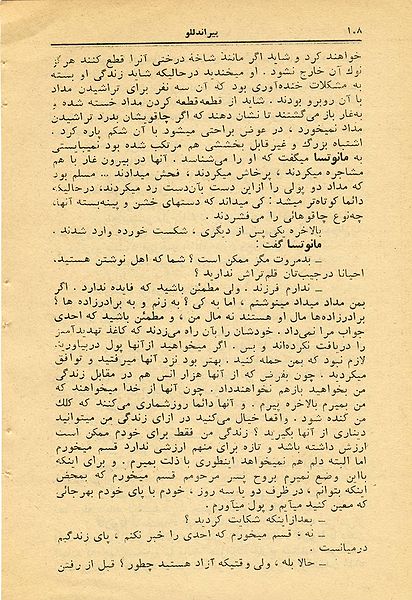 ۱۰۸
پیراندللو
خواهند کرد و شاید اگر مانند شاخهٔ درختی آنرا قطع کنند هرگز
نوك آن خارج نشود. او میخندید درحالیکه شاید زندگی او بسته
به مشکلات خنده‌آوری بود که آن سه نفر برای تراشیدن مداد
با آن روبرو بودند. شاید از قطعه‌قطعه کردن مداد خسته شده و
به‌غار باز می‌گشتند تا نشان دهند که اگر چاقویشان بدرد تراشیدن
مداد نمیخورد، در عوض براحتی میشود با آن شکم پاره کرد.
اشتباه بزرگ و غیرقابل بخششی هم مرتکب شده بود نمیبایستی
به مانوتسا میگفت که او را می‌شناسد. آنها در بیرون غار با هم
مشاجره میکردند، پرخاش میکردند، فحش میدادند ... مسلم بود
که مداد دو پولی را ازاین دست بآن‌دست رد میکردند، درحالیکه
دائما کوتاه‌تر میشد: کی میداند که دستهای خشن و پینه‌بسته آنها،
چه‌نوع چاقوهائی را می‌فشردند.
بالاخره یکی پس از دیگری، شکست خورده وارد شدند.
مانوتسا گفت:
ـ بدمروت مگر ممکن است؟ شما که اهل نوشتن هستید،
احیانا درجیب‌تان قلم‌تراش ندارید؟
ـ ندارم فرزند. ولی مطمئن باشید که فایده ندارد. اگر
بمن مداد میداد مینوشتم، اما به کی؟ به زنم و به برادرزاده ها؟
برادرزاده‌ها مال او هستند نه مال من، و مطمئن باشید که احدی
جواب مرا نمی‌داد. خودشان را بآن راه می‌زدند که کاغذ تهدیدآمیز
را دریافت نکرده‌اند و بس. اگر میخواهید ازآنها پول دربیاورید
لازم نبود که بمن حمله کنید. بهتر بود نزد آنها میرفتید و توافق
میکردید. چون بفرض که از آنها هزار انس هم در مقابل زندگی
من بخواهید بازهم نخواهندداد. چون آنها از خدا میخواهند که
من بمیرم بالاخره پیرم. و آنها دائما روزشماری می‌کنند که کلك
من کنده شود. واقعا خیال می‌کنید در ازای زندگی من میتوانید
دیناری از آنها بگیرید؟ زندگی من فقط برای خودم ممکن است
ارزش داشته باشد و تازه برای منهم ارزشی ندارد قسم میخورم
اما البته دلم هم نمیخواهد اینطوری با ذلت بمیرم. و برای اینکه
بااین وضع نمیرم بروح پسر مرحومم قسم میخورم که بمحض
اینکه بتوانم، درظرف دو یا سه روز، خودم با پای خودم بهرجائی
که معین کنید میآیم و پول میآورم.
ـ بعدازاینکه شکایت کردید؟
ـ نه، قسم میخورم که احدی را خبر نکنم، پای زندگیم
درمیانست.
ـ حالا بله، ولی وقتیکه آزاد هستید چطور؟ قبل از رفتن